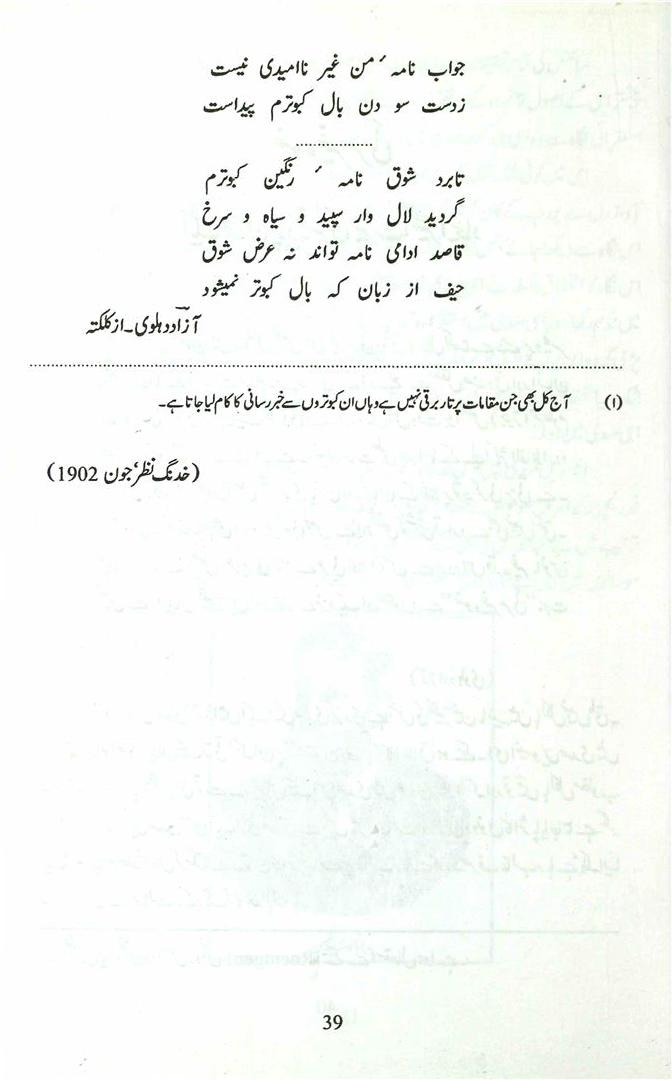 جواب نامہ ٔ من غیر ناامیدی نیست
زدست سو دن بال کبوترم پیداست
تابرد شوق نامہ ٔ رنگین کبوترم
گردید لال وار سپید و سیاہ و سرخ
قاصد ادامی نامہ تواند نہ عرض شوق
حیف از زبان کہ بال کبوتر نمیشود
آزاد دہلوی۔ از کلکتہ
(۱) آج کل بھی جن مقامات پر تار برقی نہیں ہے وہاں ان کبوتروں سے خبر رسانی کا کام لیا جاتا ہے۔
(خدنگ نظر، جون 1902)
39